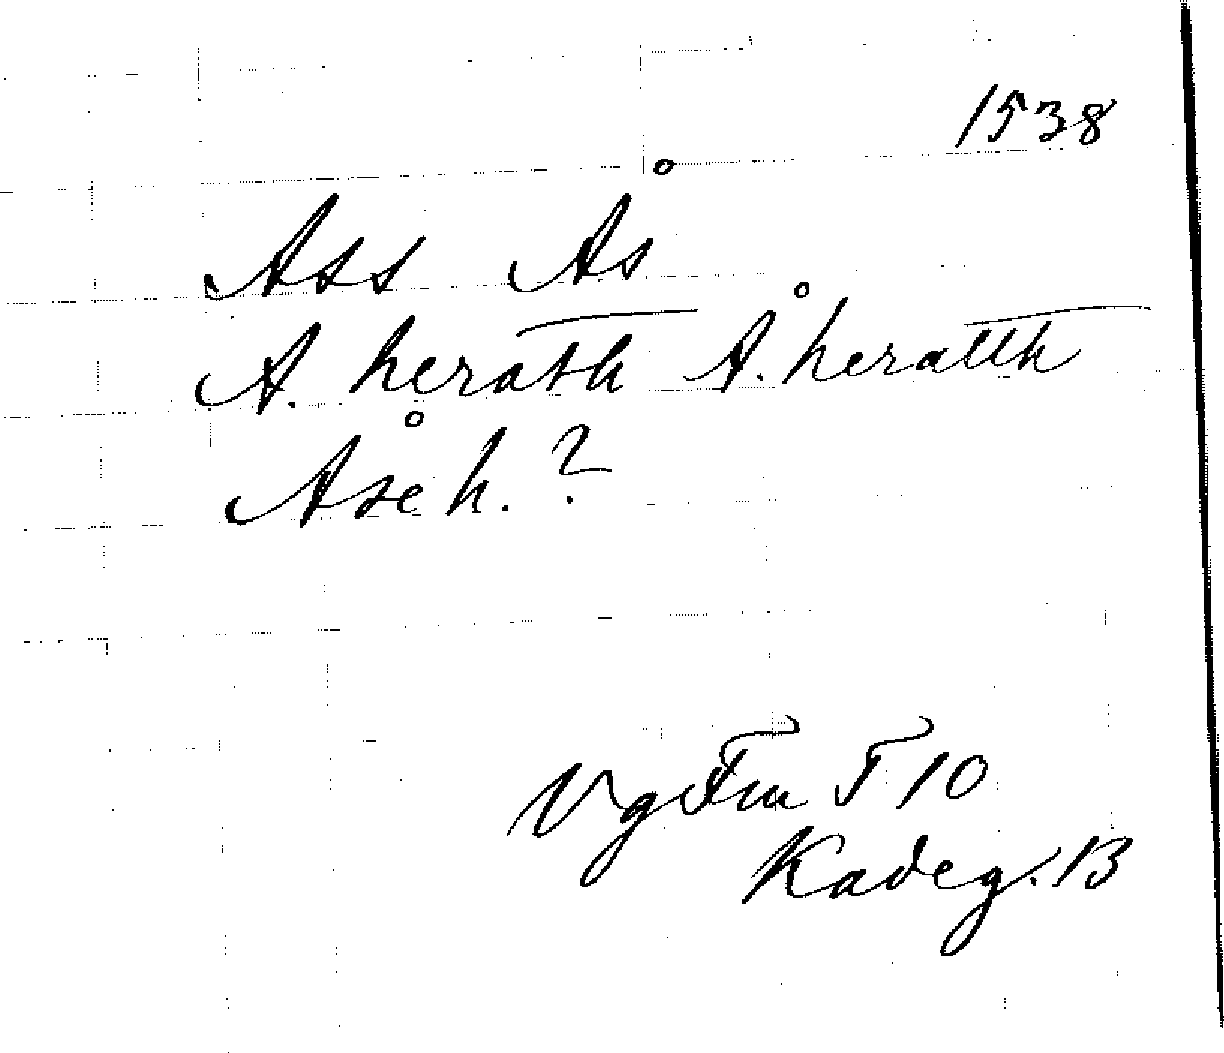 1538
Ass Ås
A. herath Å. heratth
Åse h. ?
Vg Fru T 10
Kadeg. 13